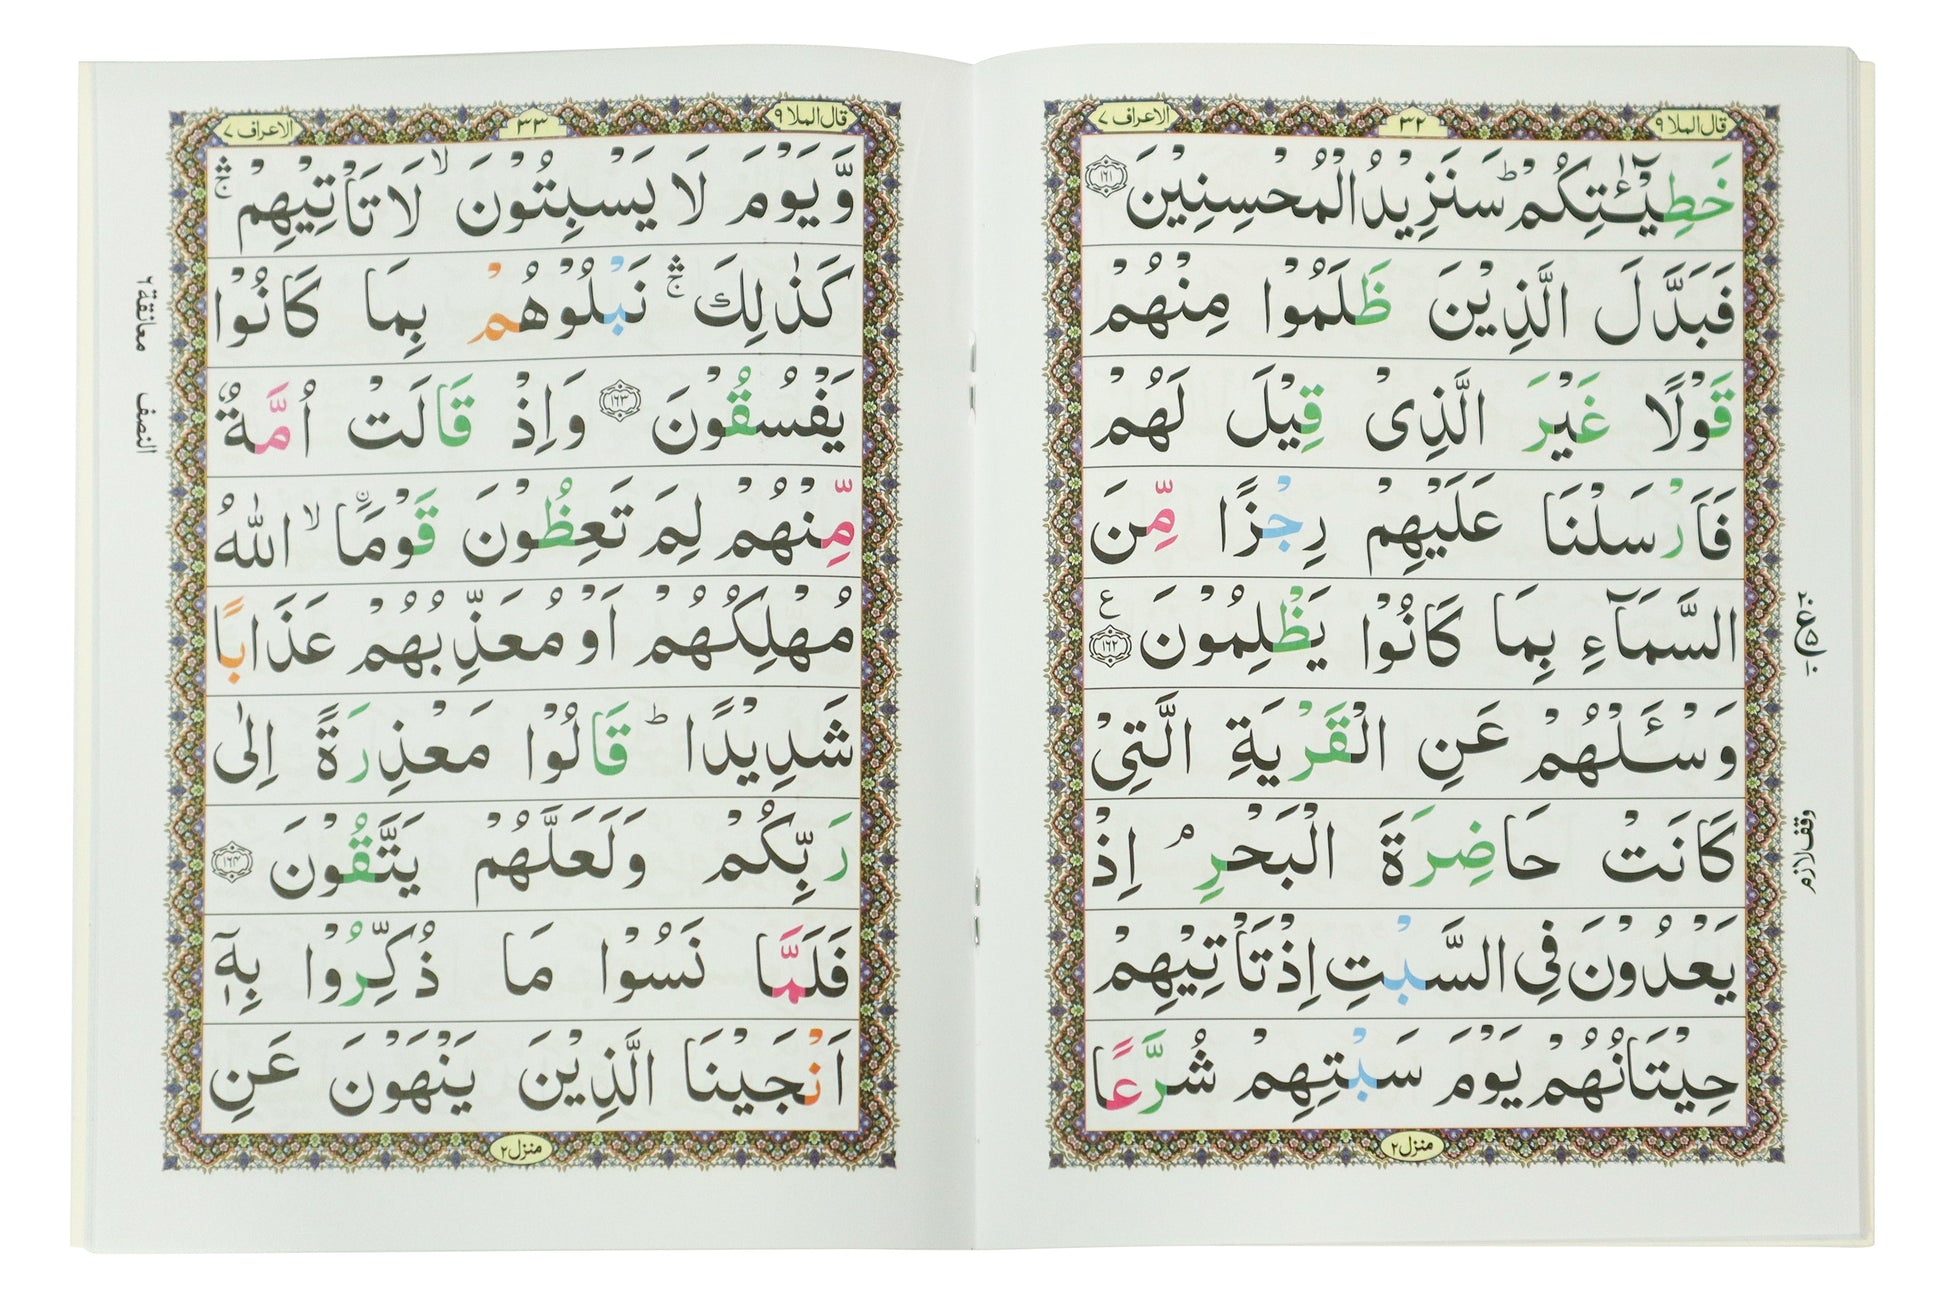 قال الملا ۹
۳۲
الاعراف ۷
خَطِيْٓـٰٔتِكُمْ ؕ سَنَزِيْدُ الْمُحْسِنِيْنَ ۱۶۱
فَبَدَّلَ الَّذِيْنَ ظَلَمُوْا مِنْهُمْ
قَوْلًا غَيْرَ الَّذِىْ قِيْلَ لَهُمْ
فَاَرْسَلْنَا عَلَيْهِمْ رِجْزًا مِّنَ
السَّمَآءِ بِمَا كَانُوْا يَظْلِمُوْنَ ۱۶۲ ع
وَسْـَٔـلْهُمْ عَنِ الْقَرْيَةِ الَّتِىْ
كَانَتْ حَاضِرَةَ الْبَحْرِ ۘ اِذْ
يَعْدُوْنَ فِى السَّبْتِ اِذْ تَاْتِيْهِمْ
حِيْتَانُهُمْ يَوْمَ سَبْتِهِمْ شُرَّعًا
منزل ۲
۲ ع ۵ ۱۰
وقف لازم
قال الملا ۹
۳۳
الاعراف ۷
وَّيَوْمَ لَا يَسْبِتُوْنَ ۙ لَا تَاْتِيْهِمْ ۛۚ
كَذٰلِكَ ۛۚ نَبْلُوْهُمْ بِمَا كَانُوْا
يَفْسُقُوْنَ ۱۶۳ وَاِذْ قَالَتْ اُمَّةٌ
مِّنْهُمْ لِمَ تَعِظُوْنَ قَوْمَاۨ ۙ اللّٰهُ
مُهْلِكُهُمْ اَوْ مُعَذِّبُهُمْ عَذَابًا
شَدِيْدًا ؕ قَالُوْا مَعْذِرَةً اِلٰى
رَبِّكُمْ وَلَعَلَّهُمْ يَتَّقُوْنَ ۱۶۴
فَلَمَّا نَسُوْا مَا ذُكِّرُوْا بِهٖٓ
اَنْجَيْنَا الَّذِيْنَ يَنْهَوْنَ عَنِ
منزل ۲
معانقة ۶
النصف